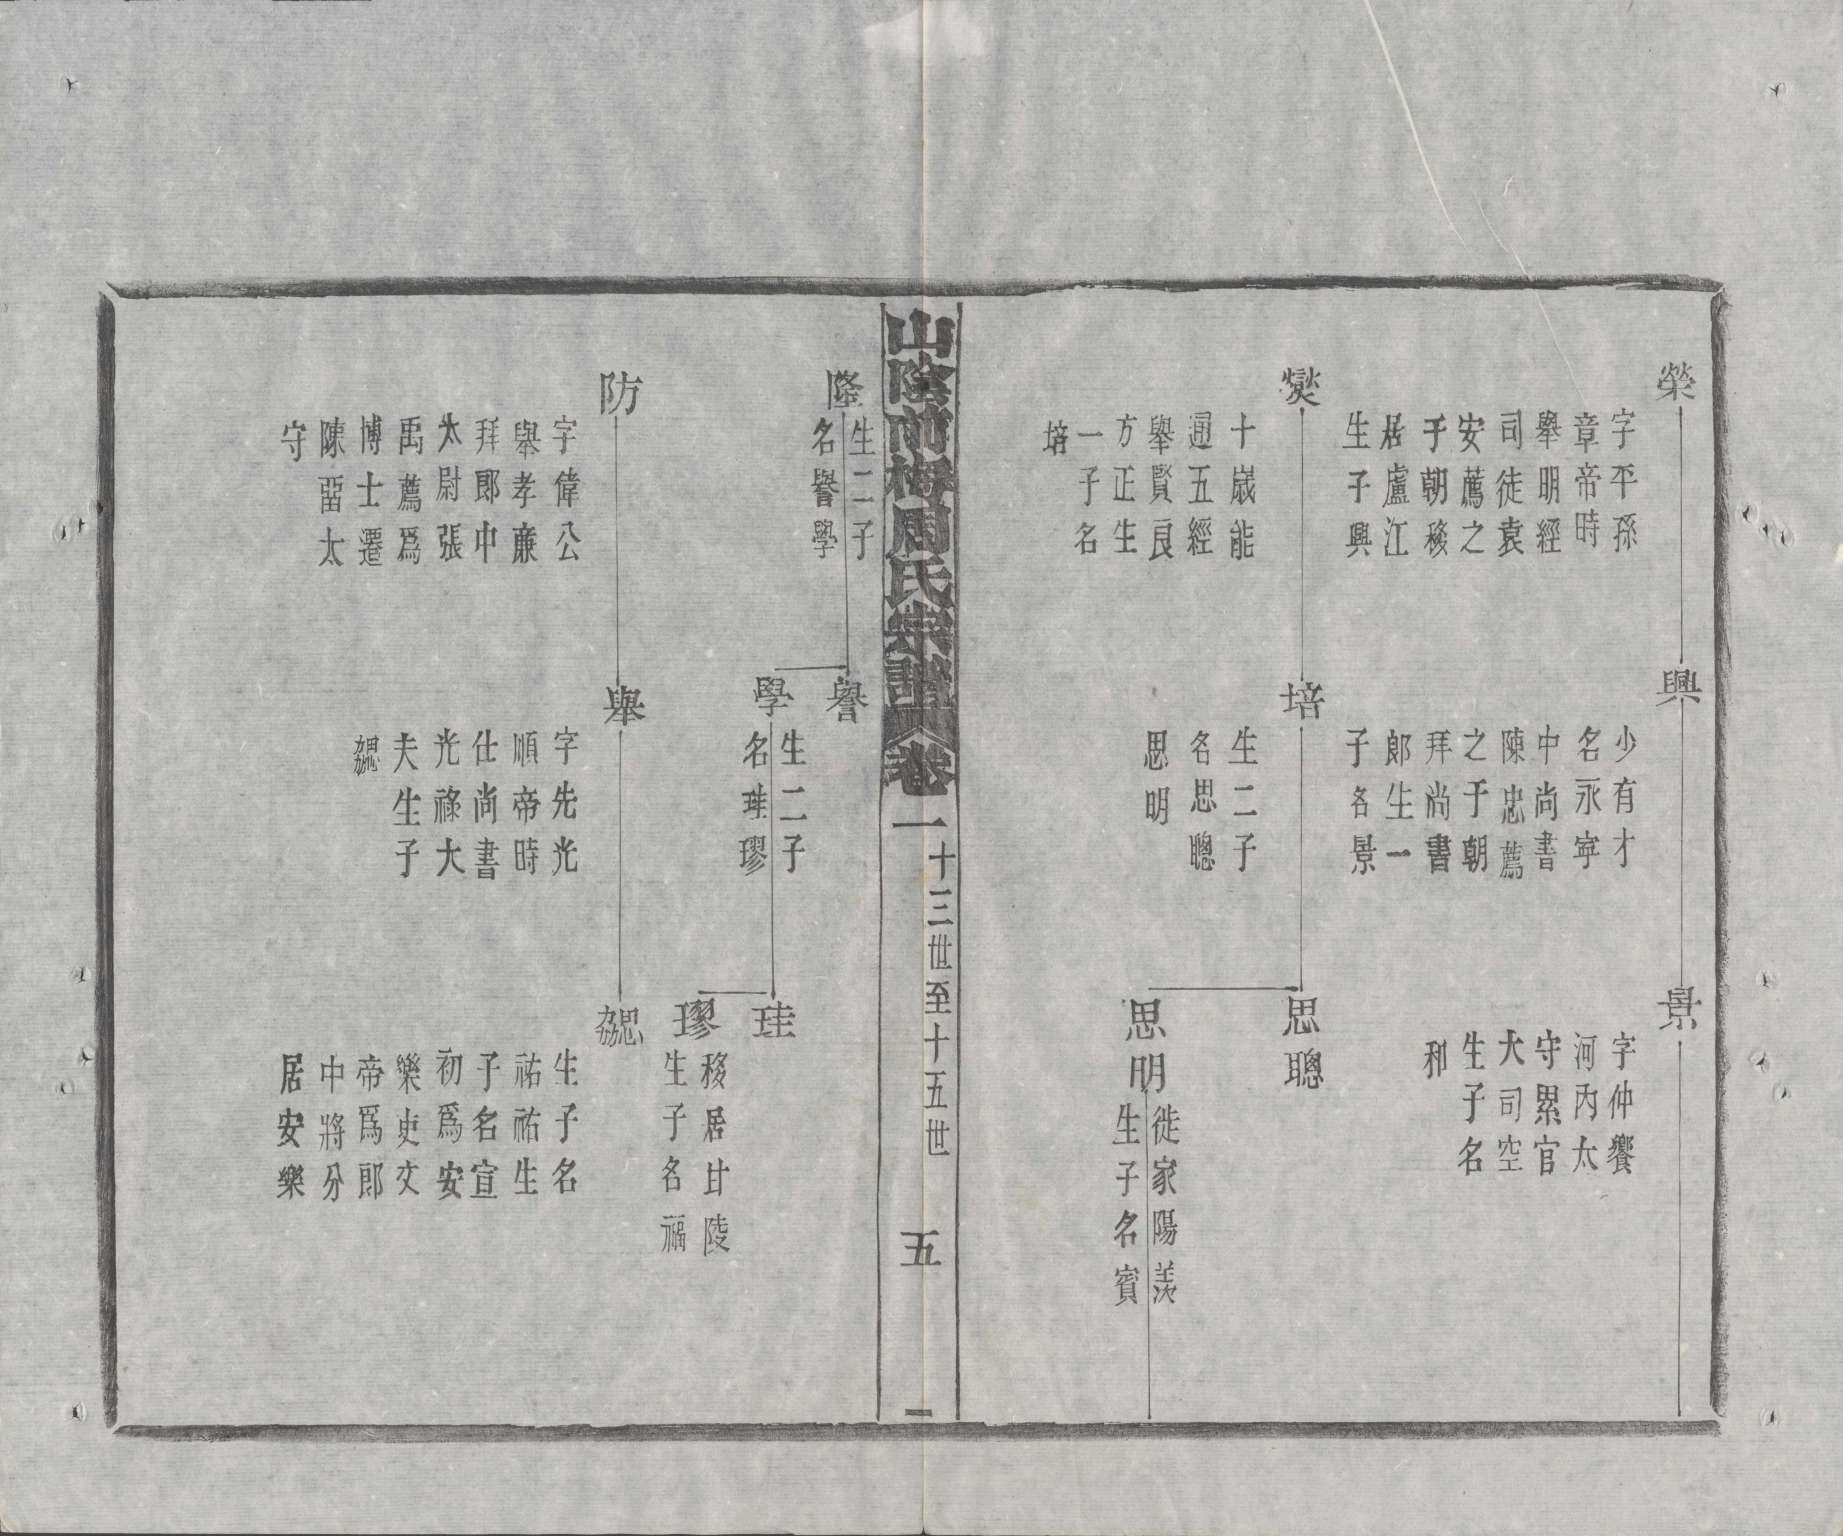 榮
字平孫
章帝時
舉明經
司徒袁
安薦之
于朝移
居盧江
生子興
興
少有才
名永寧
中尚書
陳忠薦
之于朝
拜尚書
郎生一
子名景
景
字仲饗
河內太
守累官
大司空
生子名
和
爕
十歲能
通五經
舉賢良
方正生
一子名
培
培
生二子
名思聰
思明
思聰
思明
徙家陽羨
生子名賓
山陰前梅周氏宗譜 卷一
十三世至十五世
五
隆
生二子
名譽學
譽
學
生二子
名珪璆
珪
璆
移居甘陵
生子名福
防
字偉公
舉孝廉
拜郎中
太尉張
禹薦爲
博士遷
陳畱太
守
舉
字先光
順帝時
仕尚書
光祿大
夫生子
勰
勰
生子名
祐祐生
子名宣
初爲安
樂吏文
帝爲郎
中將分
居安樂